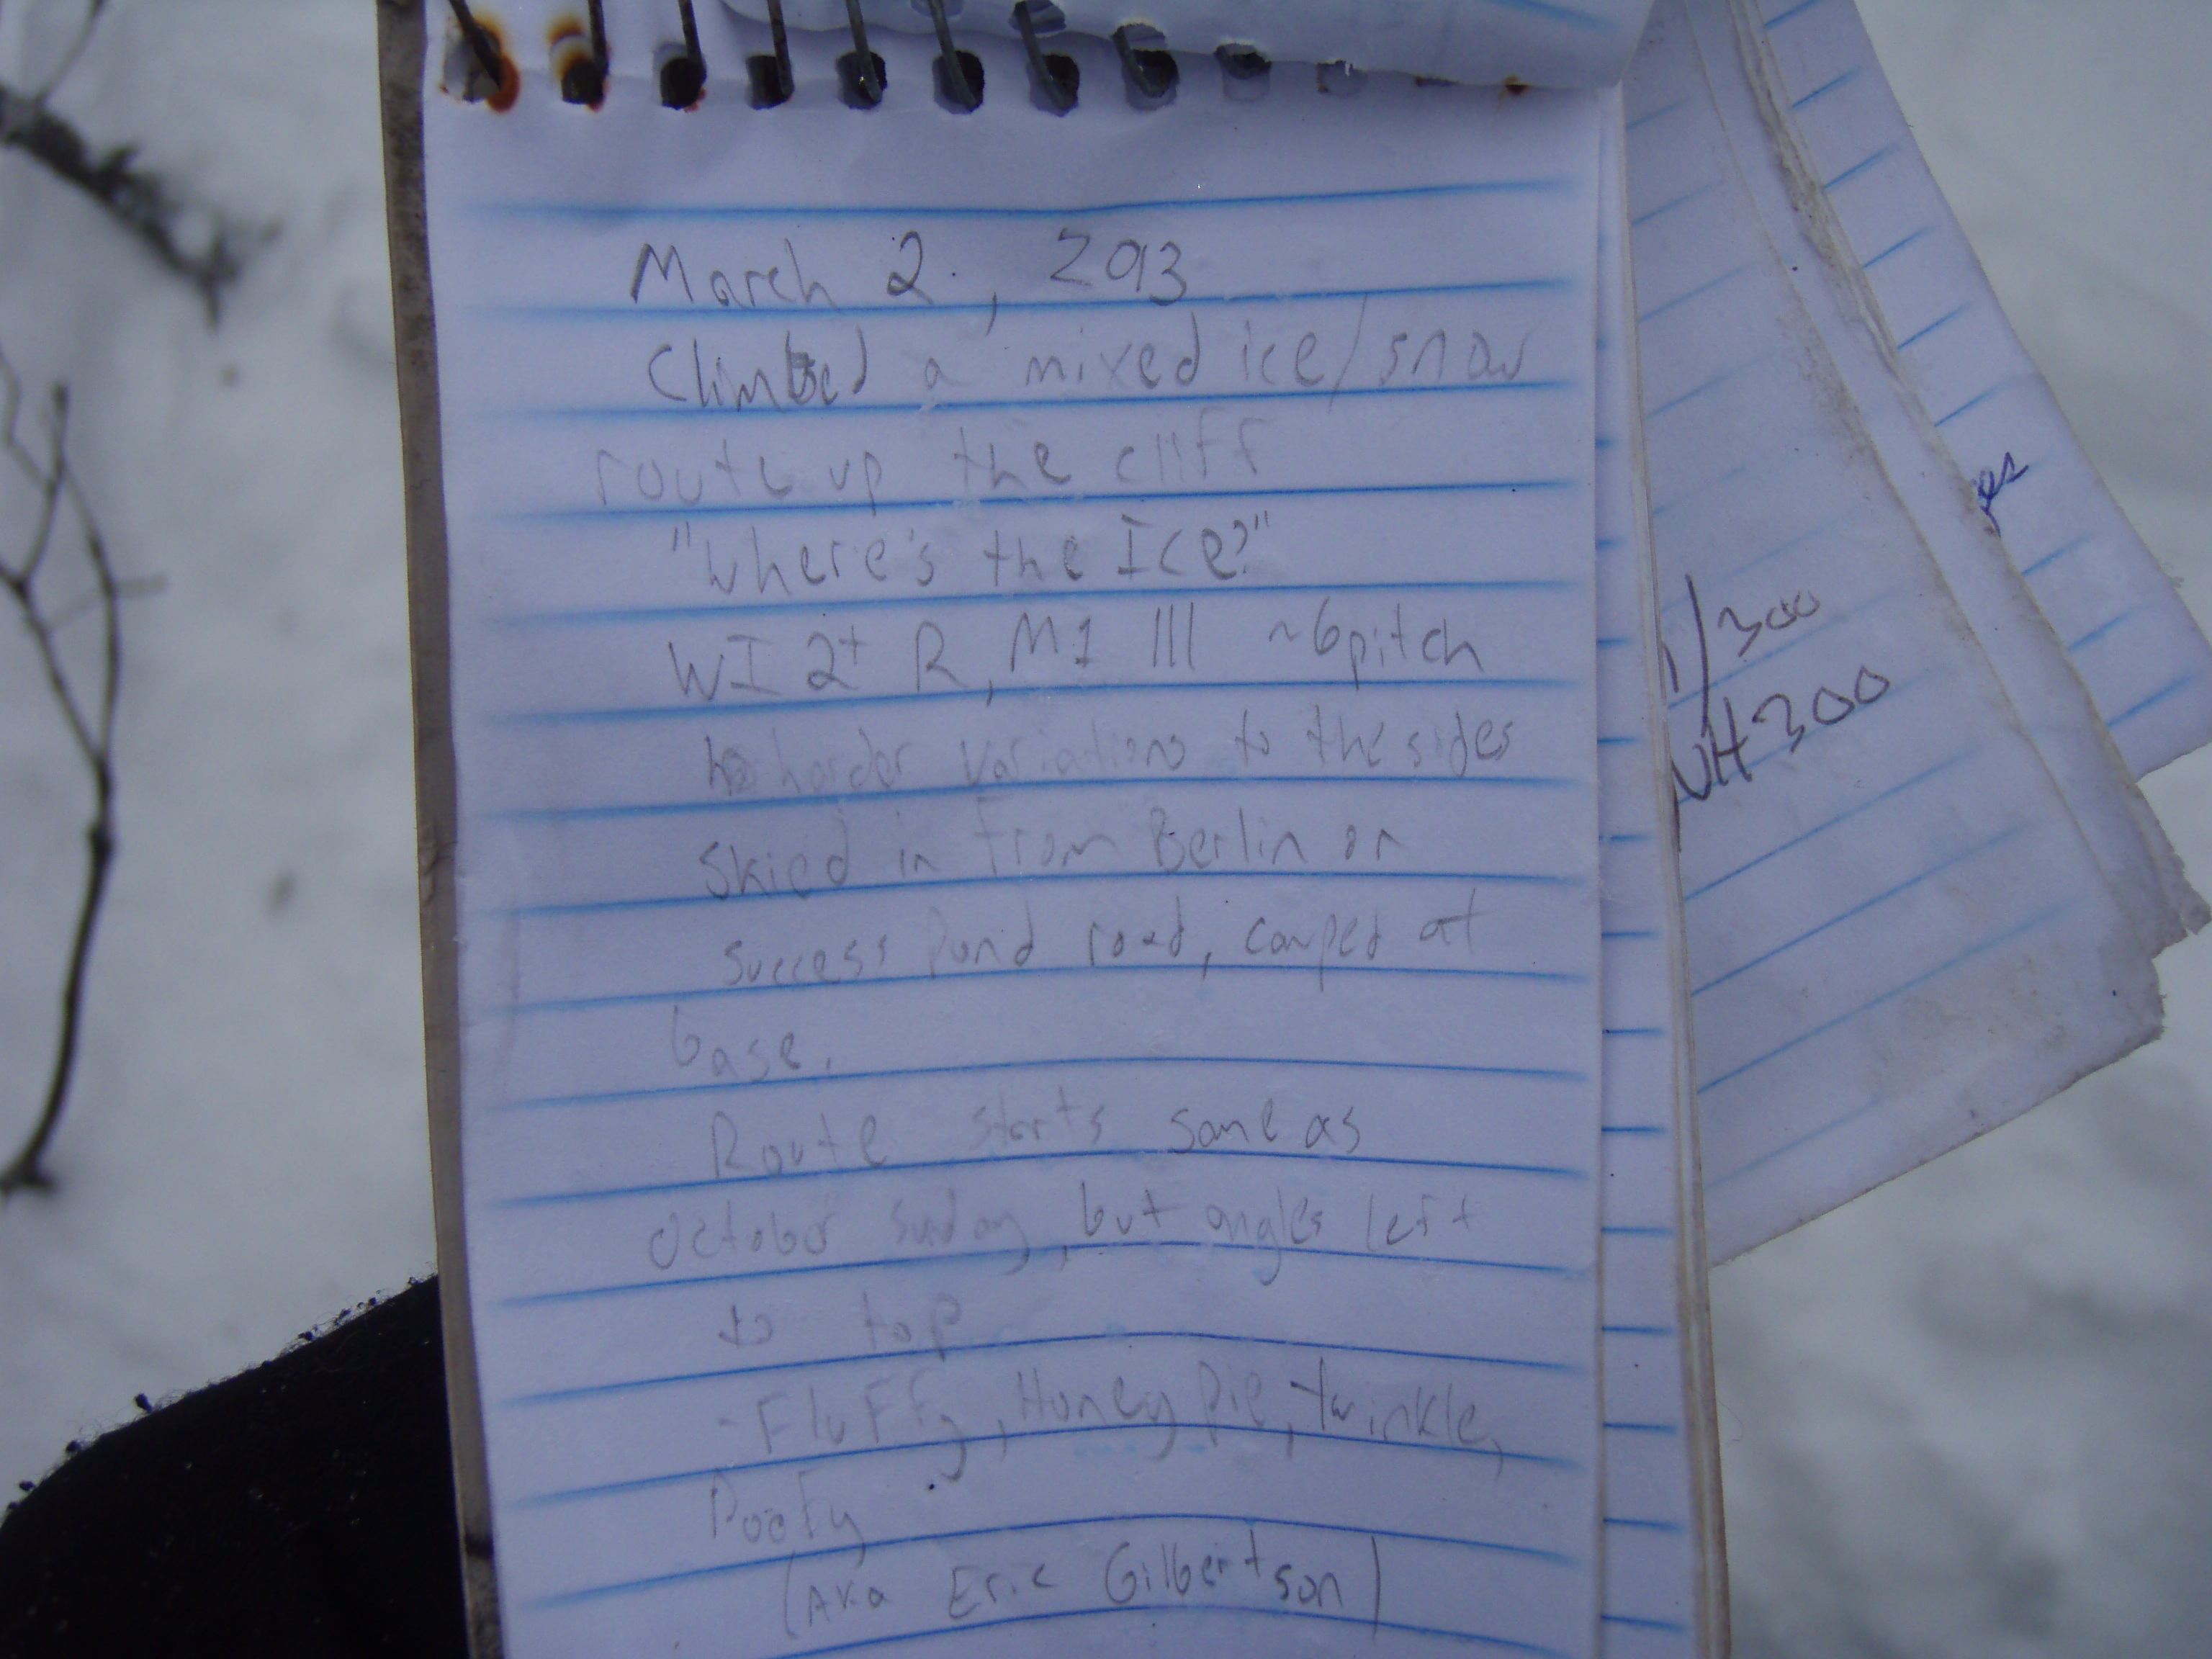 March 2, 2013
Climbed a mixed ice/snow
route up the cliff
"Where's the Ice?"
WI 2+ R, M1 III ~6pitch
harder variations to the sides
Skied in from Berlin on
Success Pond road, camped at
base.
Route starts same as
October Sunday, but angles left
to top
-Fluffy, Honey Pie, Twinkle,
Poofy
(AKA Eric Gilbertson)
/300
NH300